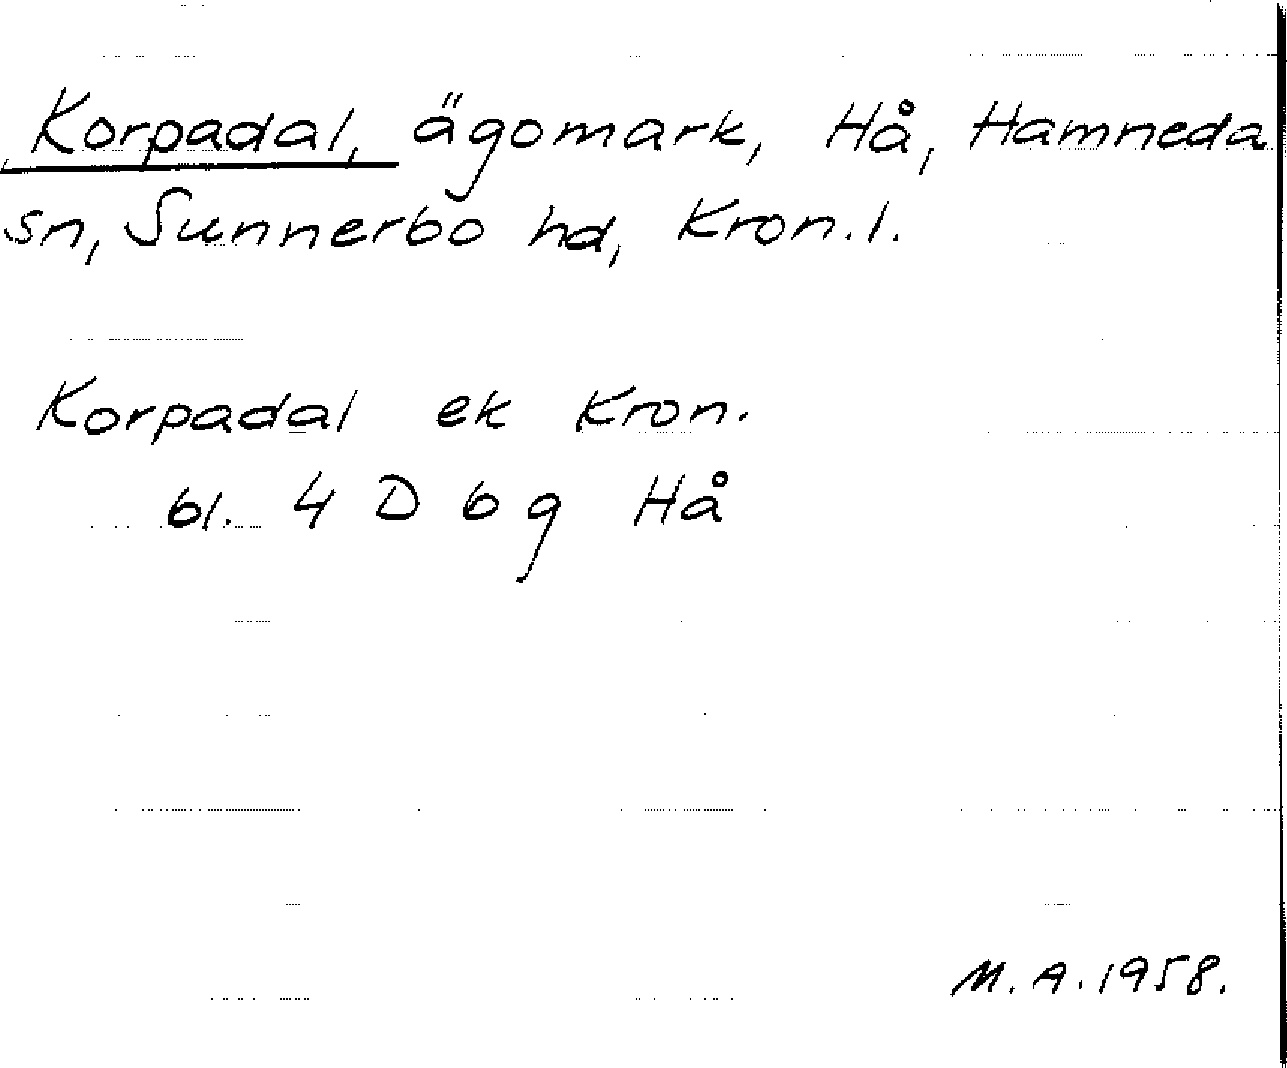 Korpadal, ägomark, Hå, Hamneda
sn, Sunnerbo hd, Kron. l.
Korpadal ek Kron.
bl. 4 D b g Hå
M. A. 1958.